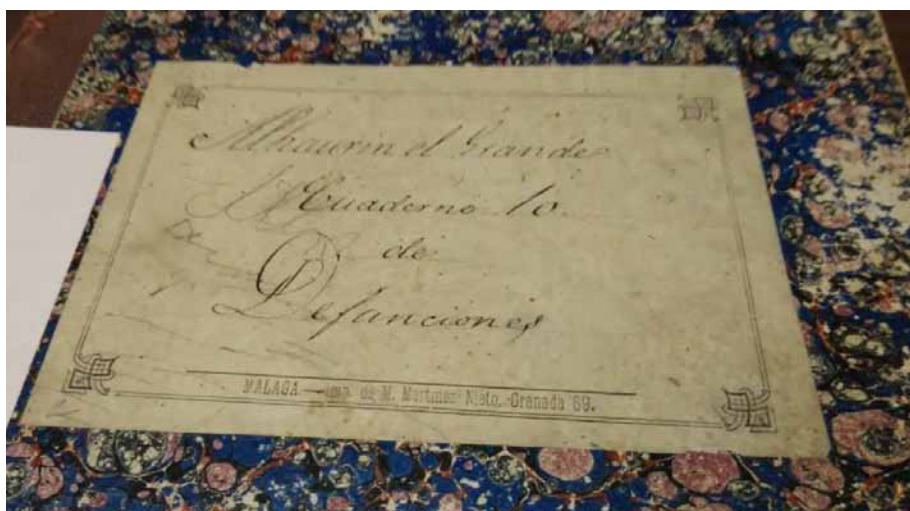 Alhaurin el Grande
Cuaderno 10
de
Defunciones
MALAGA — Imp. de M. Martinez Nieto.-Granada 69.